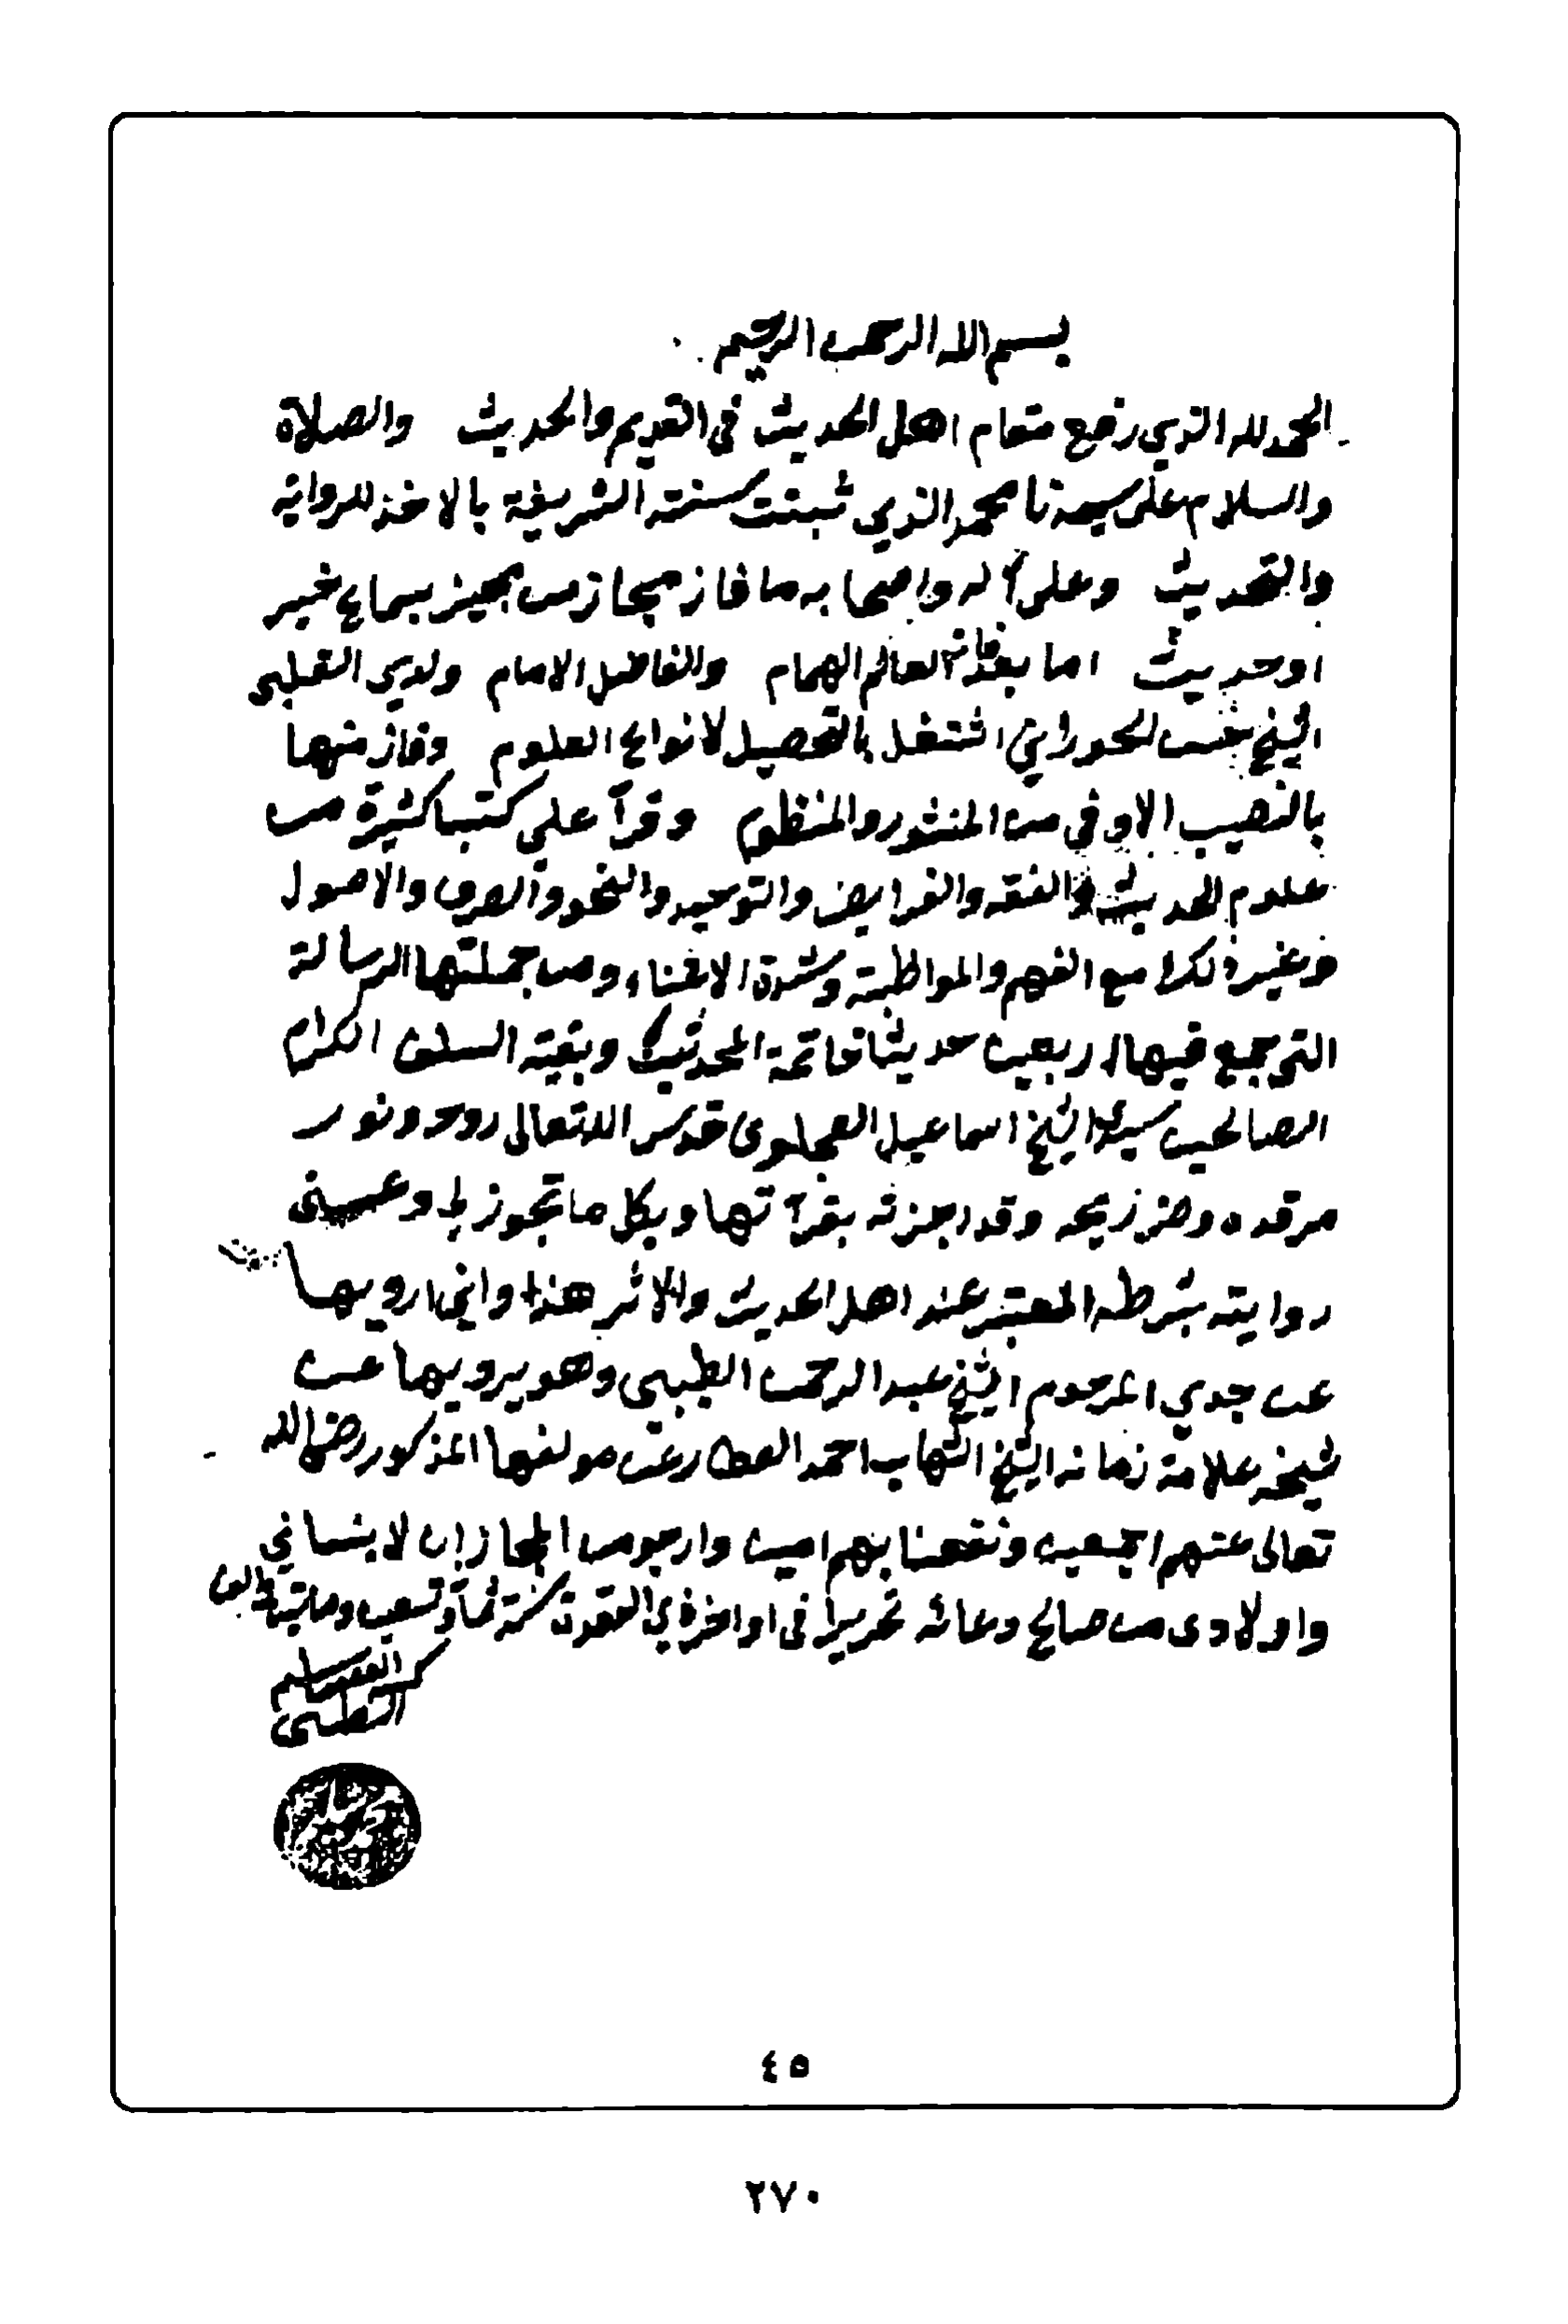 بسم الله الرحمن الرحيم
الحمد لله الذي رفع مقام اهل الحديث في القديم والحديث والصلاة
والسلام على سيدنا محمد الذي ثبتت سنته الشريفة بالاخذ للرواية
والتحديث وعلى آله واصحابه ما فاز مجاز من مجيز بسماع خبر
اوحديث اما بعد فان العالم الهمام والفاضل الامام ولدي القلبي
الشيخ الحوراني اشتغل بالتحصيل لانواع العلوم وفاز منها
بالنصيب الاوفى من المنثور والمنظوم وقرأ علي كتبا كثيرة من
علوم الحديث والفقه والفرايض والتوحيد والنحو والصرف والاصول
وغير ذلك مع الفهم والمواظبة وشدة الاعتناء ومن جملتها الرسالة
التي جمع فيها اربعين حديثا خاتمة المحدثين وبقية السلف الكرام
الصالحين سيدي الشيخ اسماعيل العجلوني قدس الله تعالى روحه ونور
مرقده وضريحه وقد اجزته بقرآتها وبكل ما تجوز لي وعني
روايته بشرطه المعتبر عند اهل الحديث والاثر هذا واني ارويها
عن جدي المرحوم الشيخ عبد الرحمن الطيبي وهو يرويها عن
شيخه علامة زمانه الشيخ الشهاب احمد العطار عن مولفها المذكور رضي الله
تعالى عنهم اجمعين ونفعنا بهم امين وارجو من المجاز ان لا ينساني
واولادي من صالح دعائه تحريرا في اواخر ذي القعدة سنة وتسعين ومايتين والف
الطيبي
٤٥
٢٧٠